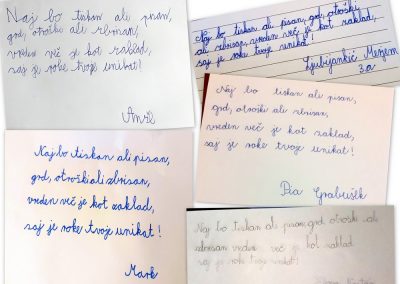 Naj bo tiskan ali pisan,
grd, otroški ali zbrisan,
vreden več je kot zaklad,
saj je roke tvoje unikat!
Naj bo tiskan ali pisan, grd, otroški
ali zbrisan, vreden več je kot zaklad,
saj je roke tvoje unikat!
Ljubijankić Merjem
3.a
Naj bo tiskan ali pisan,
grd, otroški ali zbrisan,
vreden več je kot zaklad,
saj je roke tvoje unikat!
Pia Grabušek
Naj bo tiskan ali pisan,
grd, otroški ali zbrisan,
vreden več je kot zaklad,
saj je roke tvoje unikat!
Mark
Naj bo tiskan ali pisan, grd, otroški ali
zbrisan vreden več je kot zaklad
saj je roke tvoje unikat!